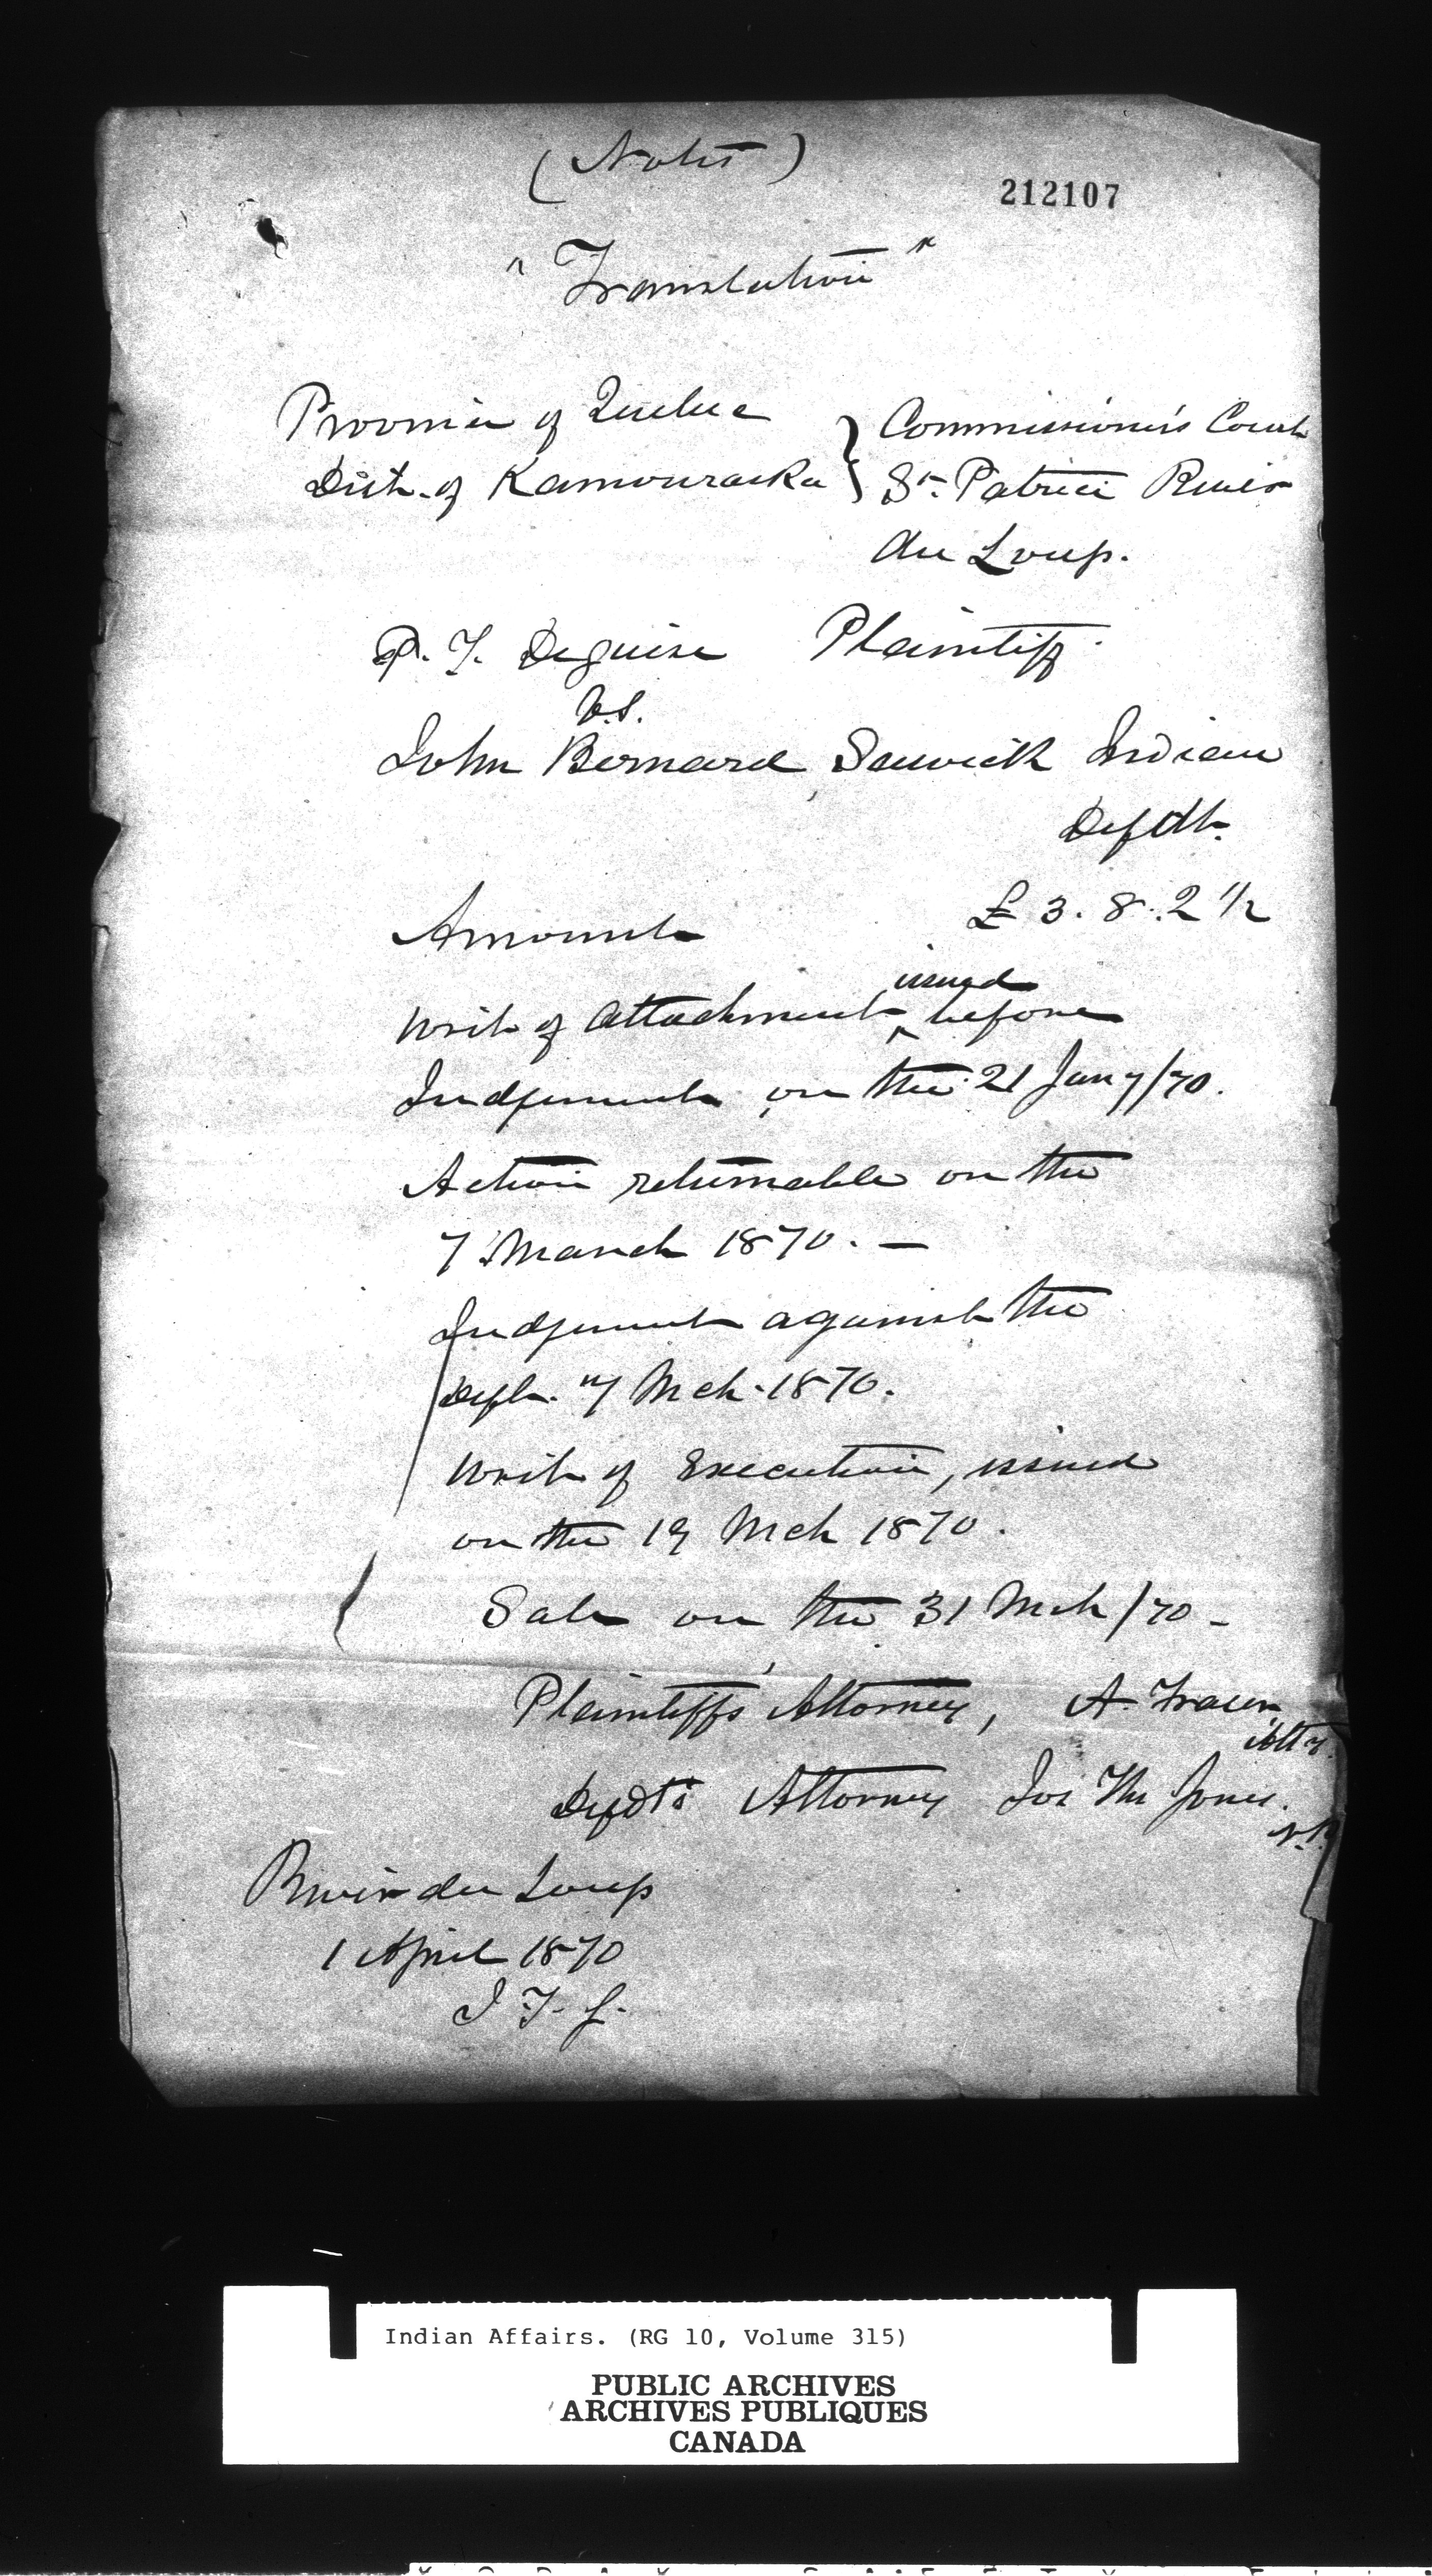 (Notes)
212107
"Translation"
Province of Quebec } Commissioner's Court
Dist. of Kamouraska } St. Patrice River
du Loup.
P. T. Deguise Plaintiff.
vs.
John Bernard, Indian
Defdt.
Amount £ 3. 8. 2 1/2
issued
Writ of attachment ^ before
Judgement on the 21 Jany/70.
Action returnable on the
7 March 1870. —
Judgement against the
Deft. 7 Mch. 1870.
Writ of Execution, issued
on the 19 Mch 1870.
Sale on the 31 Mch/70 -
Plaintiffs' Attorney, A. Fraser
Atty.
Defdt's Attorney Jos Th Jones.
N.P.
River du Loup
1 April 1870
J. T. J.
Indian Affairs. (RG 10, Volume 315)
PUBLIC ARCHIVES
ARCHIVES PUBLIQUES
CANADA